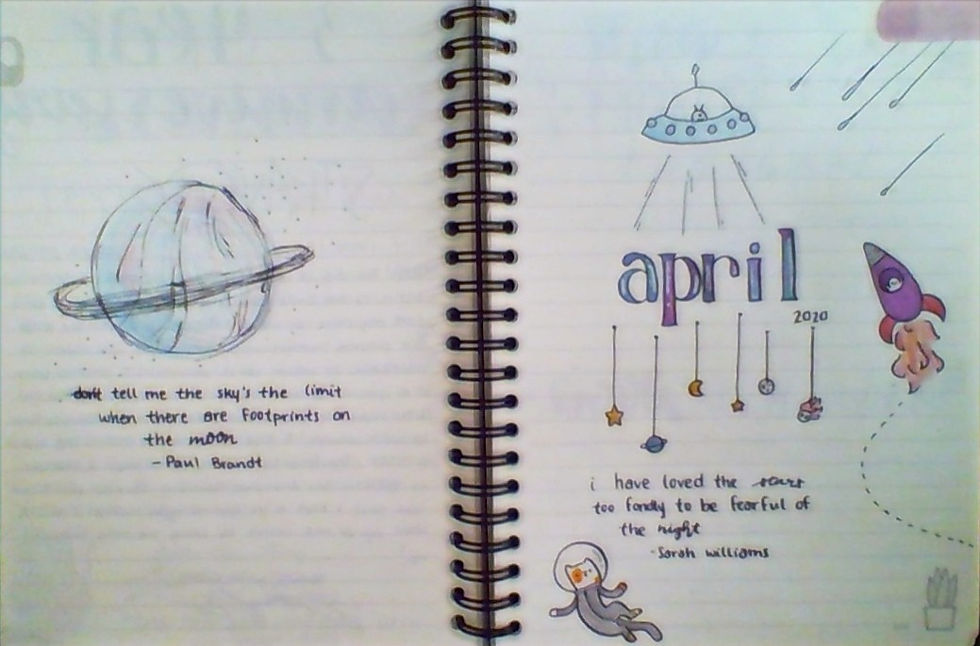 don't tell me the sky's the limit
when there are footprints on
the moon
- Paul Brandt
april
2020
i have loved the stars
too fondly to be fearful of
the night
- Sarah williams